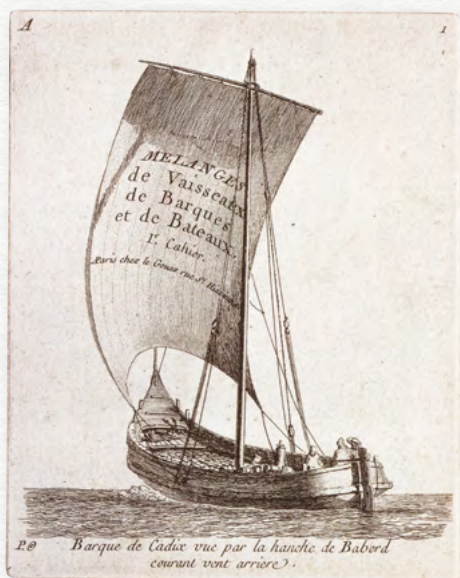 A 1
MELANGES
de Vaisseaux
de Barques
et de Bateaux.
1r. Cahier.
Paris chez le Gouaz rue St.
P.O Barque de Cadix vue par la hanche de Babord
courant vent arriere.